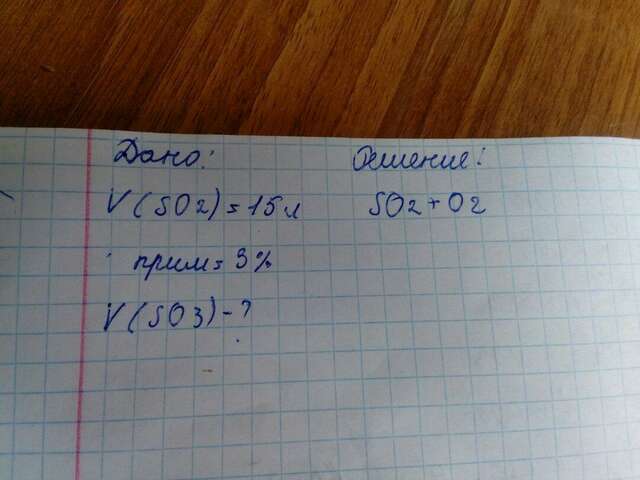 Дано:
V(SO2)=15л
прим=3%
V(SO3)-?
Решение:
SO2+O2